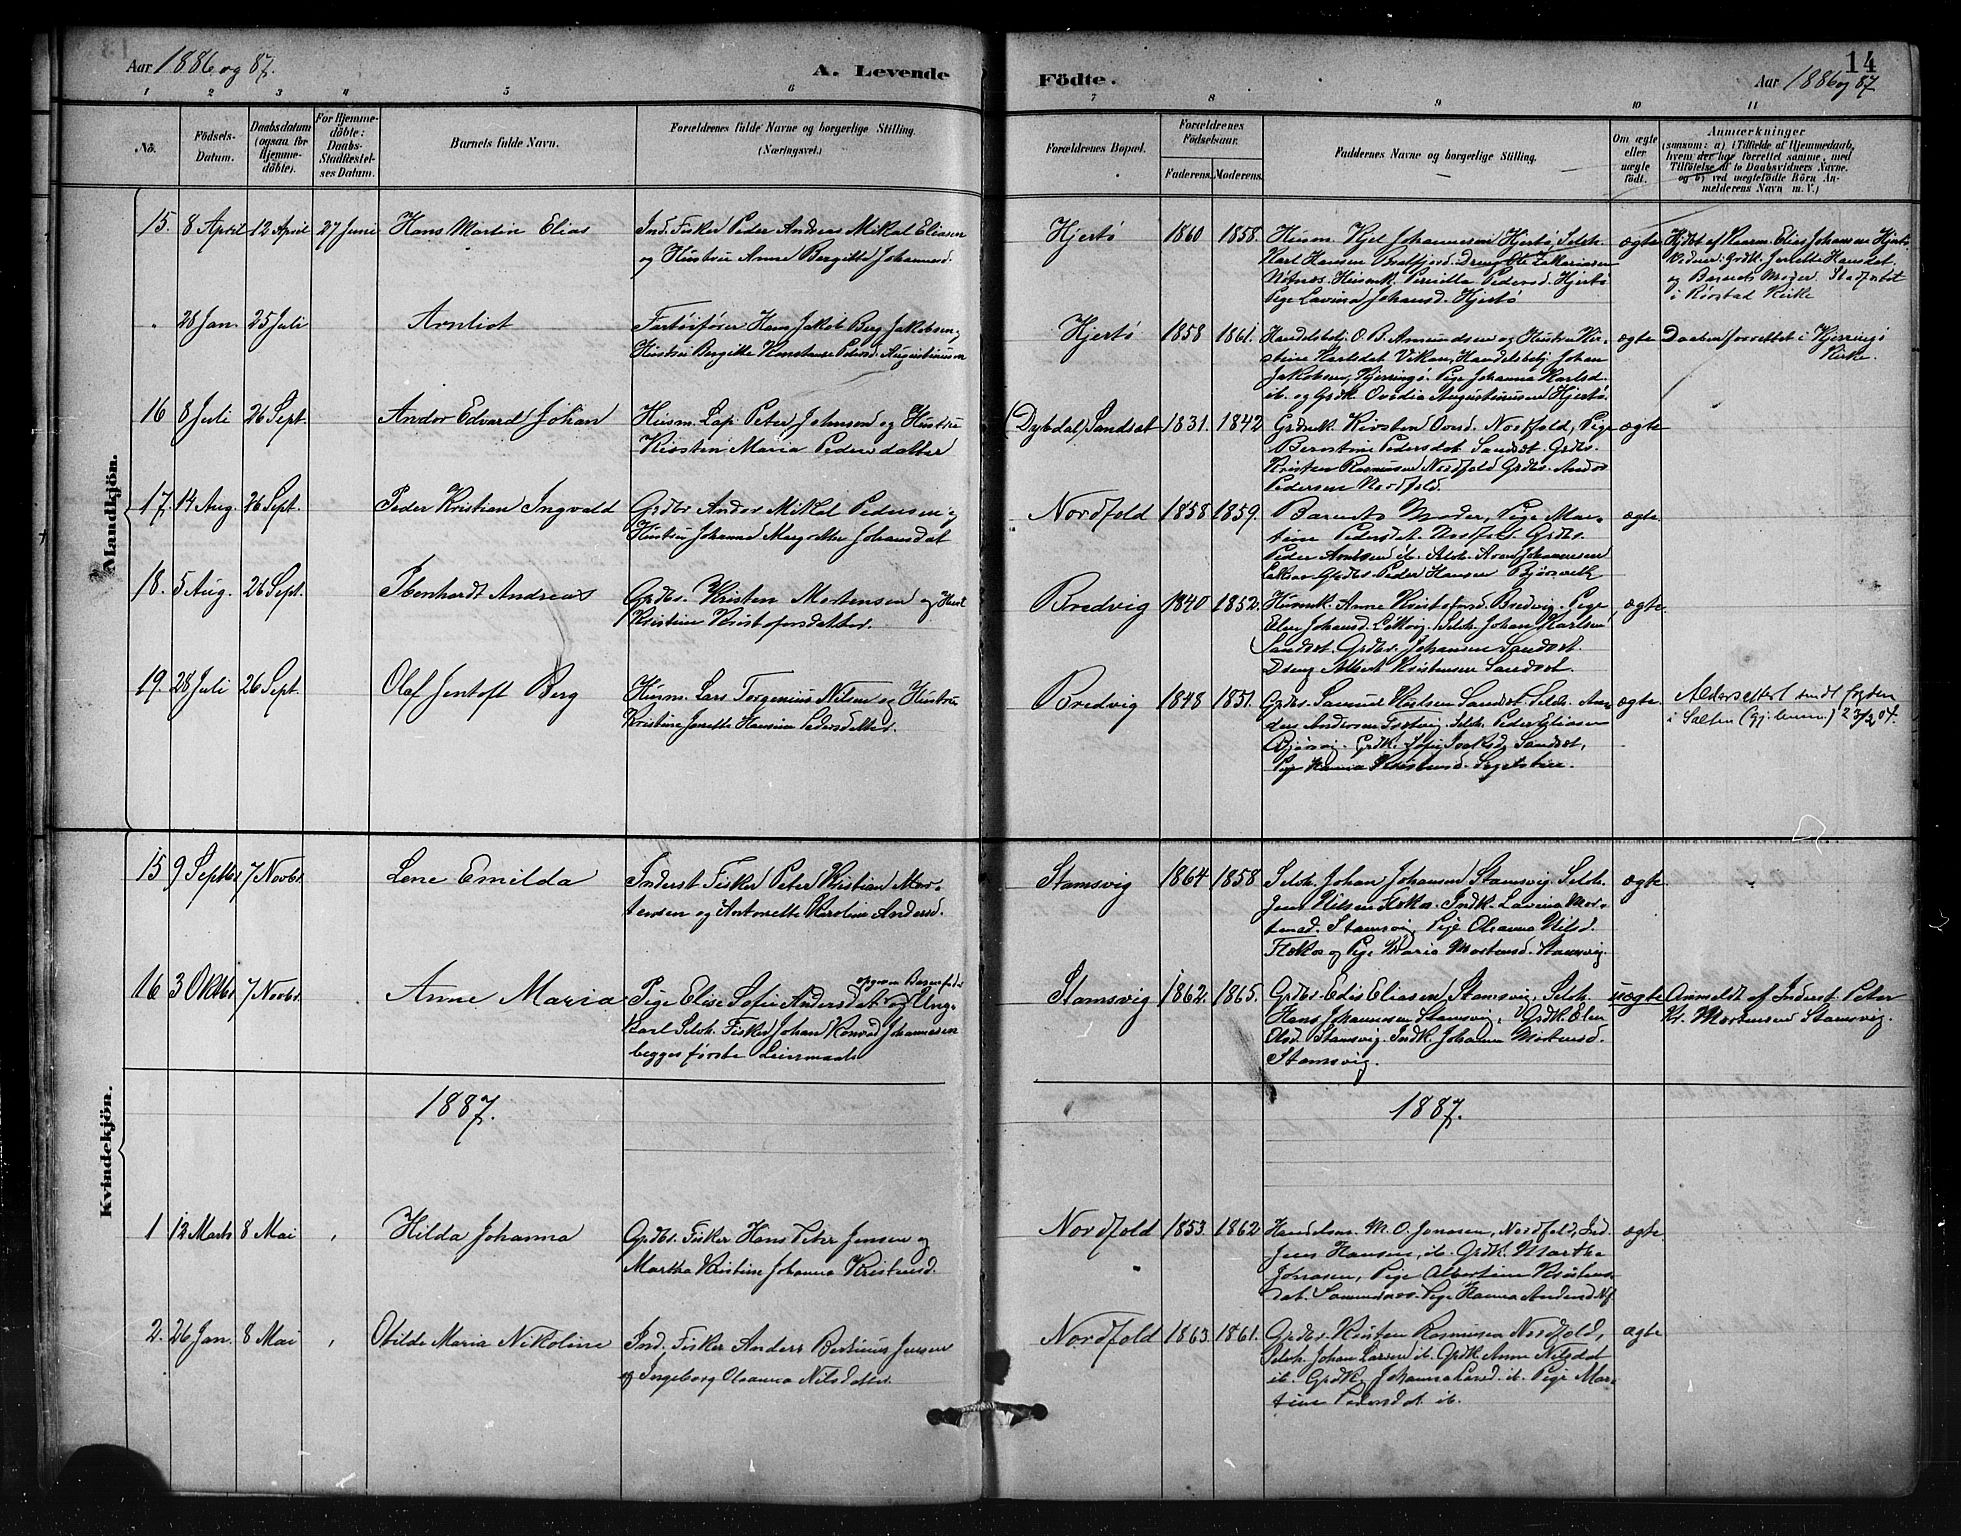 Aar 1886 og 87. A. Levende Födte. Aar 1886 og 87 14
1 2 3 4 5 6 7 8 9 10 11
No. Födsels-Datum. Daabsdatum (ogsaa for Hjemmedöbte). For Hjemmedöbte: Daabs-Stadfæstelses Datum. Barnets fulde Navn. Forældrenes fulde Navne og borgerlige Stilling. (Næringsvei.) Forældrenes Bopæl. Forældrenes Födselsaar. Faderens. Moderens. Faddernes Navne og borgerlige Stilling. Om ægte eller uægte født. Anmærkninger (saasom: a) i Tilfælde af Hjemmedaab, hvem der har forrettet samme, med Tilföielse af to Daabsvidners Navne, og b) ved uægtefödte Börn Anmelderens Navn m. V.)
Mandkjön.
15. 8 April 12 April 27 Juni Hans Martin Elias Ind. Fisker Peder Andreas Mikal Eliasen
og Hustru Anne Bergitte Johannesd.
Hjertø 1860 1858. Husm. Kjel Johannesen Hjertø, Selvh.
Karl Hansen Zakariasen
Husmk. Pernilla Pedersd. Hjertø
Pige Lavina Johansd. Hjertø
ægte Hjdbt af Elias Johansen Hjertø
Grdk. Jensette Hansdat.
og Barnets Moder. Stadfæstet
i Rørstad Kirke
" 28 Jan. 25 Juli Arnliot Fartøifører Hans Jakob Berg Jakobsen
Hustru Bergitte Konstanse Pedersd. Augustinusen
Hjertø 1858 1861. Handelsbetj. O. B. Amundsen og Hustru Kirstine Karlsdat. Viken, Handelsbetj. Johan
Jakobsen, Kjerringø. Pige Johanna Karlsd.
ib. og Grdk. Ovidia Augustinusen Hjertø.
ægte Daaben forrettet i Kjerringø
Kirke.
16 8 Juli 26 Sept. Andor Edvard Johan Husm. Lap Peter Johnsen og Hustru
Kirsten Maria Pedersdatter
(Dybdal) Sandset 1831. 1842 Grdmk. Kirsten Nordfold, Pige
Berntine Pedersdat. Sandset Grdbs.
Kristen Rasmusen Nordfold Grdbs. Andor
Pedersen Nordfold.
ægte
17. 14 Aug. 26 Sept. Peder Kristian Ingvald Grdbr. Andor Mikal Pedersen og
Hustru Johanna Margrethe Johansdat
Nordfold 1858 1859. Barnets Moder, Pige Martine Pedersdat. Nordfold. Grdbs.
Peder Arntsen ib. Selvh. Johannesen
Grdbs. Peder Hansen Bjørsvik
ægte
18. 5 Aug. 26 Sept. Ebenhardt Andreas Grdbr. Kristen Mortensen og Hust.
Kristine Kristofersdatter.
Bredvig 1840 1852. Husmk. Anne Kristofersd. Bredvig. Pige
Elen Johansd. Løkvig. Selvh. Johan Karlsen
Sandset. Grdbr. Johansen Sandset.
Dreng Albert Kristensen Sandset.
ægte.
19. 28 Juli 26 Sept. Olaf Jentoft Berg Husm. Lars Torgenius Nilsen og Hustru
Kristine Jenette Hansine Pedersdatter.
Bredvig 1848 1851. Grdbr. Samuel Karlsen Sandset. Selvh. Andreas Andersen Selvh. Peder Eliasen
Bjørsvig. Grdk. Sofie Isaksd. Sandset,
Pige Hanna Kristensd.
ægte. Aldersattest sendt fogden
i Salten (Gjilemm) 23/2 07.
Kvindekjön.
15 9 Septbr 7 Novbr. Lene Emilda Inderst Fisker Peter Kristian Mortensen og Antonette Karoline Andersd.
Stamsvig 1864 1858 Selvh. Johan Johansen Stamsvig. Selvh.
Jens Nilsen Flokos. Indk. Lavina Mortensd. Stamsvig, Pige Oleanna Nilsd.
Flokos og Pige Maria Mortensd. Stamsvig.
ægte
16 3 Oktbr 7 Novbr. Anne Maria Pige Elise Sofie Andersdat. og Ungkarl Selvh. Fisker Johan Konrad Johannesen
begges første Leiermaal
Stamsvig 1862 1865. Grdbr. Edis Eliasen Stamsvig. Selvh.
Hans Johannesen Stamsvig, Grdk. Elen
Olsd. Stamsvig. Indk. Johanna Mortensd.
Stamsvig.
uægte Anmeldt af Inderst Peter
Kr. Mortensen Stamsvig.
1887. 1887.
1 12 Marts 8 Mai Hilda Johanna Grdbr. Fisker Hans Peter Jensen og
Martha Kristine Johanna Kristensd.
Nordfold 1853. 1862 Handelsm. M. O. Jonasen, Nordfold, Ind.
Jens Hansen, ib. Grdk. Marthe
Jonasen, Pige Albertine Kristensdat. Pige Hanna Andersd. Nf.
ægte
2. 26 Jan. 8 Mai Otilde Maria Nikoline Ind. Fisker Anders Berthinus Jensen
og Ingeborg Oleanna Nilsdatter.
Nordfold 1863. 1861. Grdbr. Kristen Rasmusen Nordfold,
Selvh. Johan Larsen ib. Grdk. Anne Nilsdat
ib. Grdk. Johanna Larsd. ib. Pige Martine Pedersdat. ib.
ægte